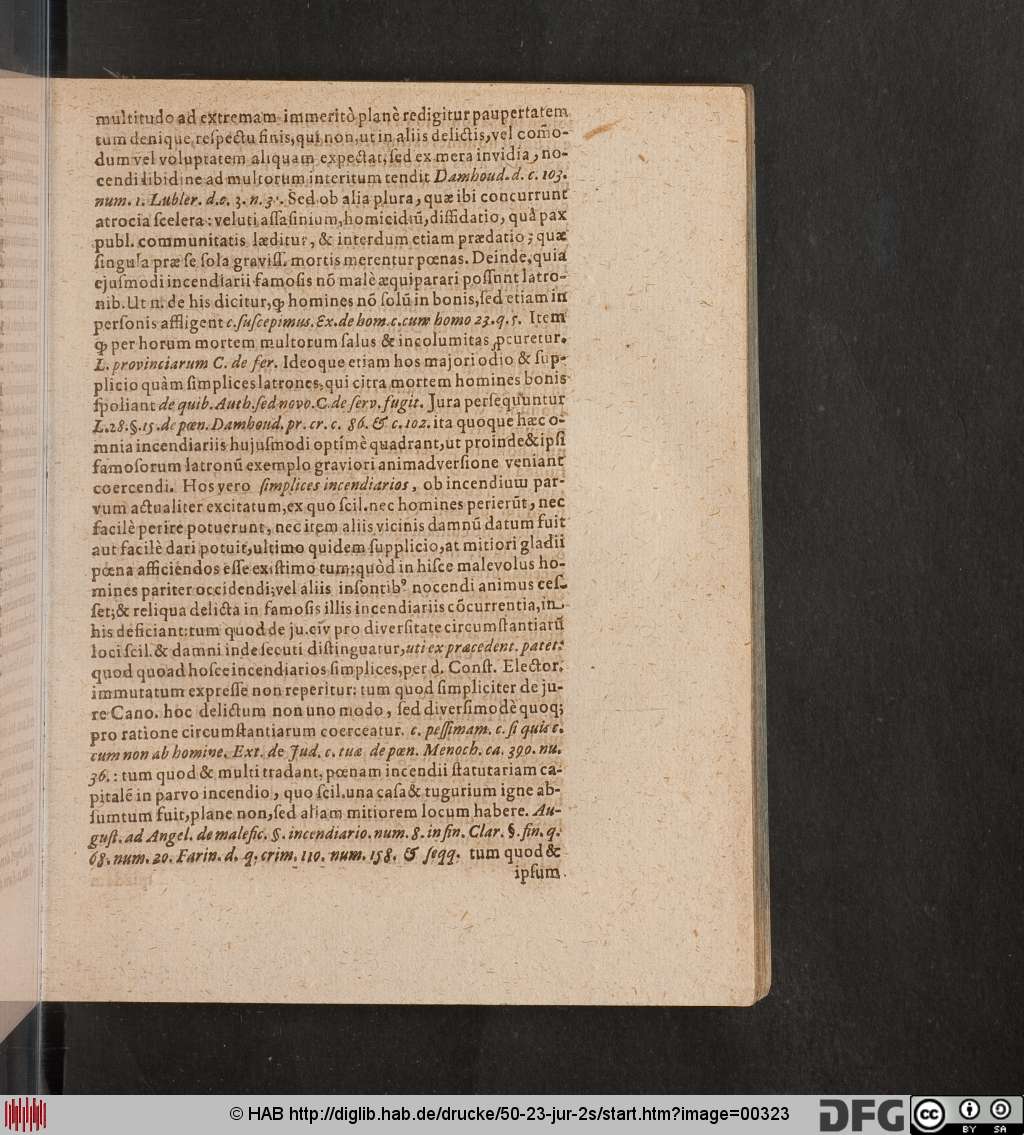 multitudo ad extremam immeritò planè redigitur paupertatem
tum denique, reſpectu finis, qui non, ut in aliis delictis, vel com̃o-
dum vel voluptatem aliquam expectat, ſed ex mera invidia, no-
cendi libidine ad multorum interitum tendit Damhoud. d. c. 103.
num. 1. Lubler. d. c. 3. n. 3. Sed ob alia plura, quæ ibi concurrunt
atrocia ſcelera: veluti aſſaſinium, homicidiũ, diffidatio, quâ pax
publ. communitatis læditur, & interdum etiam prædatio; quæ
ſingula præ ſe ſola graviſſ. mortis merentur pœnas. Deinde, quia
ejuſmodi incendiarii famoſis nõ malè æquiparari poſſunt latro-
nib. Ut n. de his dicitur, ꝙ homines nõ ſolũ in bonis, ſed etiam in
perſonis affligent c. ſuſcepimus. Ex. de hom. c. cum homo 23. q. 5. Item
ꝙ per horum mortem multorum ſalus & incolumitas ꝓcuretur.
L. provinciarum C. de fer. Ideoque etiam hos majori odio & ſup-
plicio quàm ſimplices latrones, qui citra mortem homines bonis
ſpoliant de quib. Auth. ſed novo. C. de ſerv. fugit. Jura perſequuntur
L. 28. §. 15. de pœn. Damhoud. pr. cr. c. 86. & c. 102. ita quoque hæc o-
mnia incendiariis hujuſmodi optimè quadrant, ut proinde & ipſi
famoſorum latronũ exemplo graviori animadverſione veniant
coercendi. Hos vero ſimplices incendiarios, ob incendium par-
vum actualiter excitatum, ex quo ſcil. nec homines perierũt, nec
facilè perire potuerunt, nec item aliis vicinis damnũ datum fuit
aut facilè dari potuit, ultimo quidem ſupplicio, at mitiori gladii
pœna afficiendos eſſe exiſtimo tum; quòd in hiſce malevolus ho-
mines pariter occidendi; vel aliis inſontibꝰ nocendi animus ceſ-
ſet; & reliqua delicta in famoſis illis incendiariis cõcurrentia, in
his deficiant: tum quod de ju. civ pro diverſitate circumſtantiarũ
loci ſcil. & damni inde ſecuti diſtinguatur, uti ex præcedent. patet:
quod quoad hoſce incendiarios ſimplices, per d. Conſt. Elector.
immutatum expreſſe non reperitur: tum quod ſimpliciter de ju-
re Cano. hoc delictum non uno modo, ſed diverſimodè quoq;
pro ratione circumſtantiarum coerceatur. c. peſſimam. c. ſi quis c.
cum non ab homine. Ext. de Jud. c. tua de pœn. Menoch. ca. 390. nu.
36.: tum quod & multi tradant, pœnam incendii ſtatutariam ca-
pitalẽ in parvo incendio, quo ſcil. una caſa & tugurium igne ab-
ſumtum fuit, plane non, ſed aliam mitiorem locum habere. Au-
guſt. ad Angel. de malefic. §. incendiario. num. 8. in fin. Clar. §. fin. q.
68. num. 20. Farin. d. q. crim. 110. num. 158. & ſeqq. tum quod &
ipſum
© HAB http://diglib.hab.de/drucke/50-23-jur-2s/start.htm?image=00323
DFG
cc BY SA